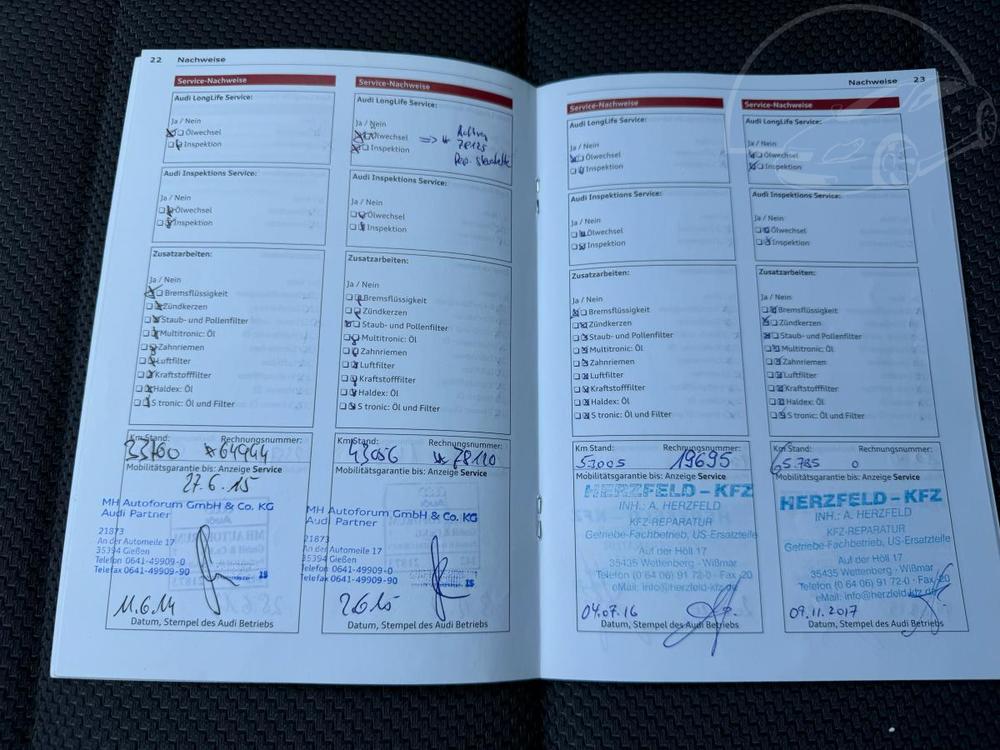 22 Nachweise
Service-Nachweise
Audi LongLife Service:
Ja / Nein
Ölwechsel
Inspektion
Audi Inspektions Service:
Ja / Nein
Ölwechsel
Inspektion
Zusatzarbeiten:
Ja / Nein
Bremsflüssigkeit
Zündkerzen
Staub- und Pollenfilter
Multitronic: Öl
Zahnriemen
Luftfilter
Kraftstofffilter
Haldex: Öl
S tronic: Öl und Filter
Km Stand: Rechnungsnummer:
33700 *64944
Mobilitätsgarantie bis: Anzeige Service
27.6.15
MH Autoforum GmbH & Co. KG
Audi Partner
21873
An der Automeile 17
35394 Gießen
Telefon 0641-49909-0
Telefax 0641-49909-90
11.6.14
Datum, Stempel des Audi Betriebs
Service-Nachweise
Audi LongLife Service:
Ja / Nein
Ölwechsel
Inspektion
=> * Auftrag
78125
Audi Inspektions Service:
Ja / Nein
Ölwechsel
Inspektion
Zusatzarbeiten:
Ja / Nein
Bremsflüssigkeit
Zündkerzen
Staub- und Pollenfilter
Multitronic: Öl
Zahnriemen
Luftfilter
Kraftstofffilter
Haldex: Öl
S tronic: Öl und Filter
Km Stand: Rechnungsnummer:
43056 * 78120
Mobilitätsgarantie bis: Anzeige Service
MH Autoforum GmbH & Co. KG
Audi Partner
21873
An der Automeile 17
35394 Gießen
Telefon 0641-49909-0
Telefax 0641-49909-90
Datum, Stempel des Audi Betriebs
Nachweise 23
Service-Nachweise
Audi LongLife Service:
Ja / Nein
Ölwechsel
Inspektion
Audi Inspektions Service:
Ja / Nein
Ölwechsel
Inspektion
Zusatzarbeiten:
Ja / Nein
Bremsflüssigkeit
Zündkerzen
Staub- und Pollenfilter
Multitronic: Öl
Zahnriemen
Luftfilter
Kraftstofffilter
Haldex: Öl
S tronic: Öl und Filter
Km Stand: Rechnungsnummer:
53005 19695
Mobilitätsgarantie bis: Anzeige Service
HERZFELD - KFZ
INH.: A. HERZFELD
KFZ-REPARATUR
Getriebe-Fachbetrieb, US-Ersatzteile
Auf der Höll 17
35435 Wettenberg - Wißmar
Telefon (0 64 06) 91 72-0 · Fax -20
eMail: info@herzfeld-kfz.de
04.07.16
Datum, Stempel des Audi Betriebs
Service-Nachweise
Audi LongLife Service:
Ja / Nein
Ölwechsel
Inspektion
Audi Inspektions Service:
Ja / Nein
Ölwechsel
Inspektion
Zusatzarbeiten:
Ja / Nein
Bremsflüssigkeit
Zündkerzen
Staub- und Pollenfilter
Multitronic: Öl
Zahnriemen
Luftfilter
Kraftstofffilter
Haldex: Öl
S tronic: Öl und Filter
Km Stand: Rechnungsnummer:
65.785 0
Mobilitätsgarantie bis: Anzeige Service
HERZFELD - KFZ
INH.: A. HERZFELD
KFZ-REPARATUR
Getriebe-Fachbetrieb, US-Ersatzteile
Auf der Höll 17
35435 Wettenberg - Wißmar
Telefon (0 64 06) 91 72-0 · Fax -20
eMail: info@herzfeld-kfz.de
09.11.2017
Datum, Stempel des Audi Betriebs